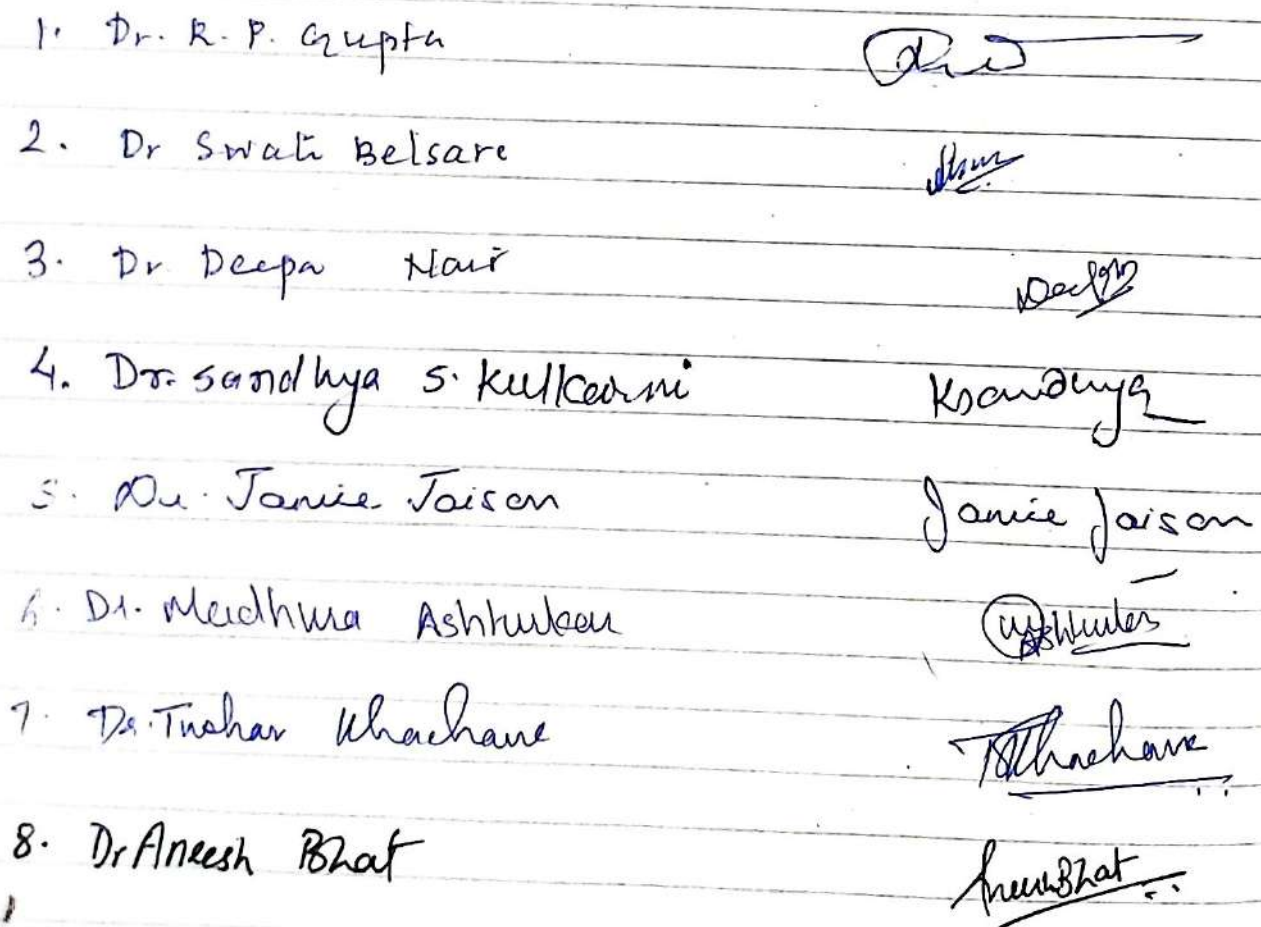 1. Dr. R. P. Gupta
2. Dr Swati Belsare
3. Dr Deepa Nair
4. Dr. Sandhya S. Kulkarni Ksandhya
5. Dr. Janice Jaison Janice Jaison
6. Dr. Madhura Ashturkar
7. Dr. Tushar Khachane TKhachane
8. Dr Aneesh Bhat AneeshBhat